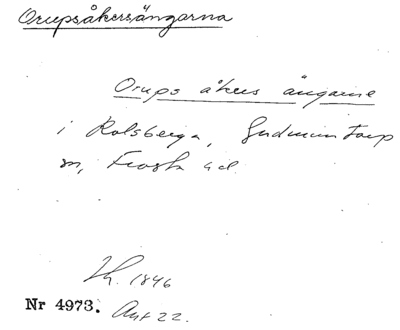 Orupsåkersängarna
Orups åkers ängarne
i Rolsberga, Gudmuntorp
sn, Frosta hd.
Lh. 1846
Nr 4973. Akt 22.